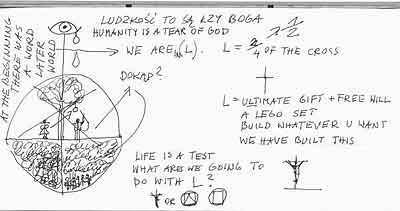 AT THE BEGINNING
THERE WAS
A WORD
LATER
WORLD
LUDZKOŚĆ TO SĄ ŁZY BOGA
HUMANITY IS A TEAR OF GOD
WE ARE IN (L).
L = 2/4 OF THE CROSS
DOKĄD?
L = ULTIMATE GIFT + FREE WILL
A LEGO SET
BUILD WHATEVER U WANT
WE HAVE BUILT THIS
LIFE IS A TEST
WHAT ARE WE GOING TO
DO WITH L?
OR